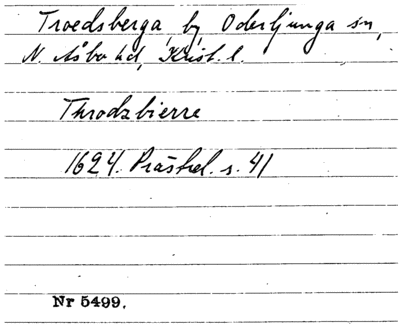 Troedsberga, by, Oderljunga sn,
N. Åsbo hd, Krist. l.
Throdzbierre
1624. Prästrel. s. 41
Nr 5499.